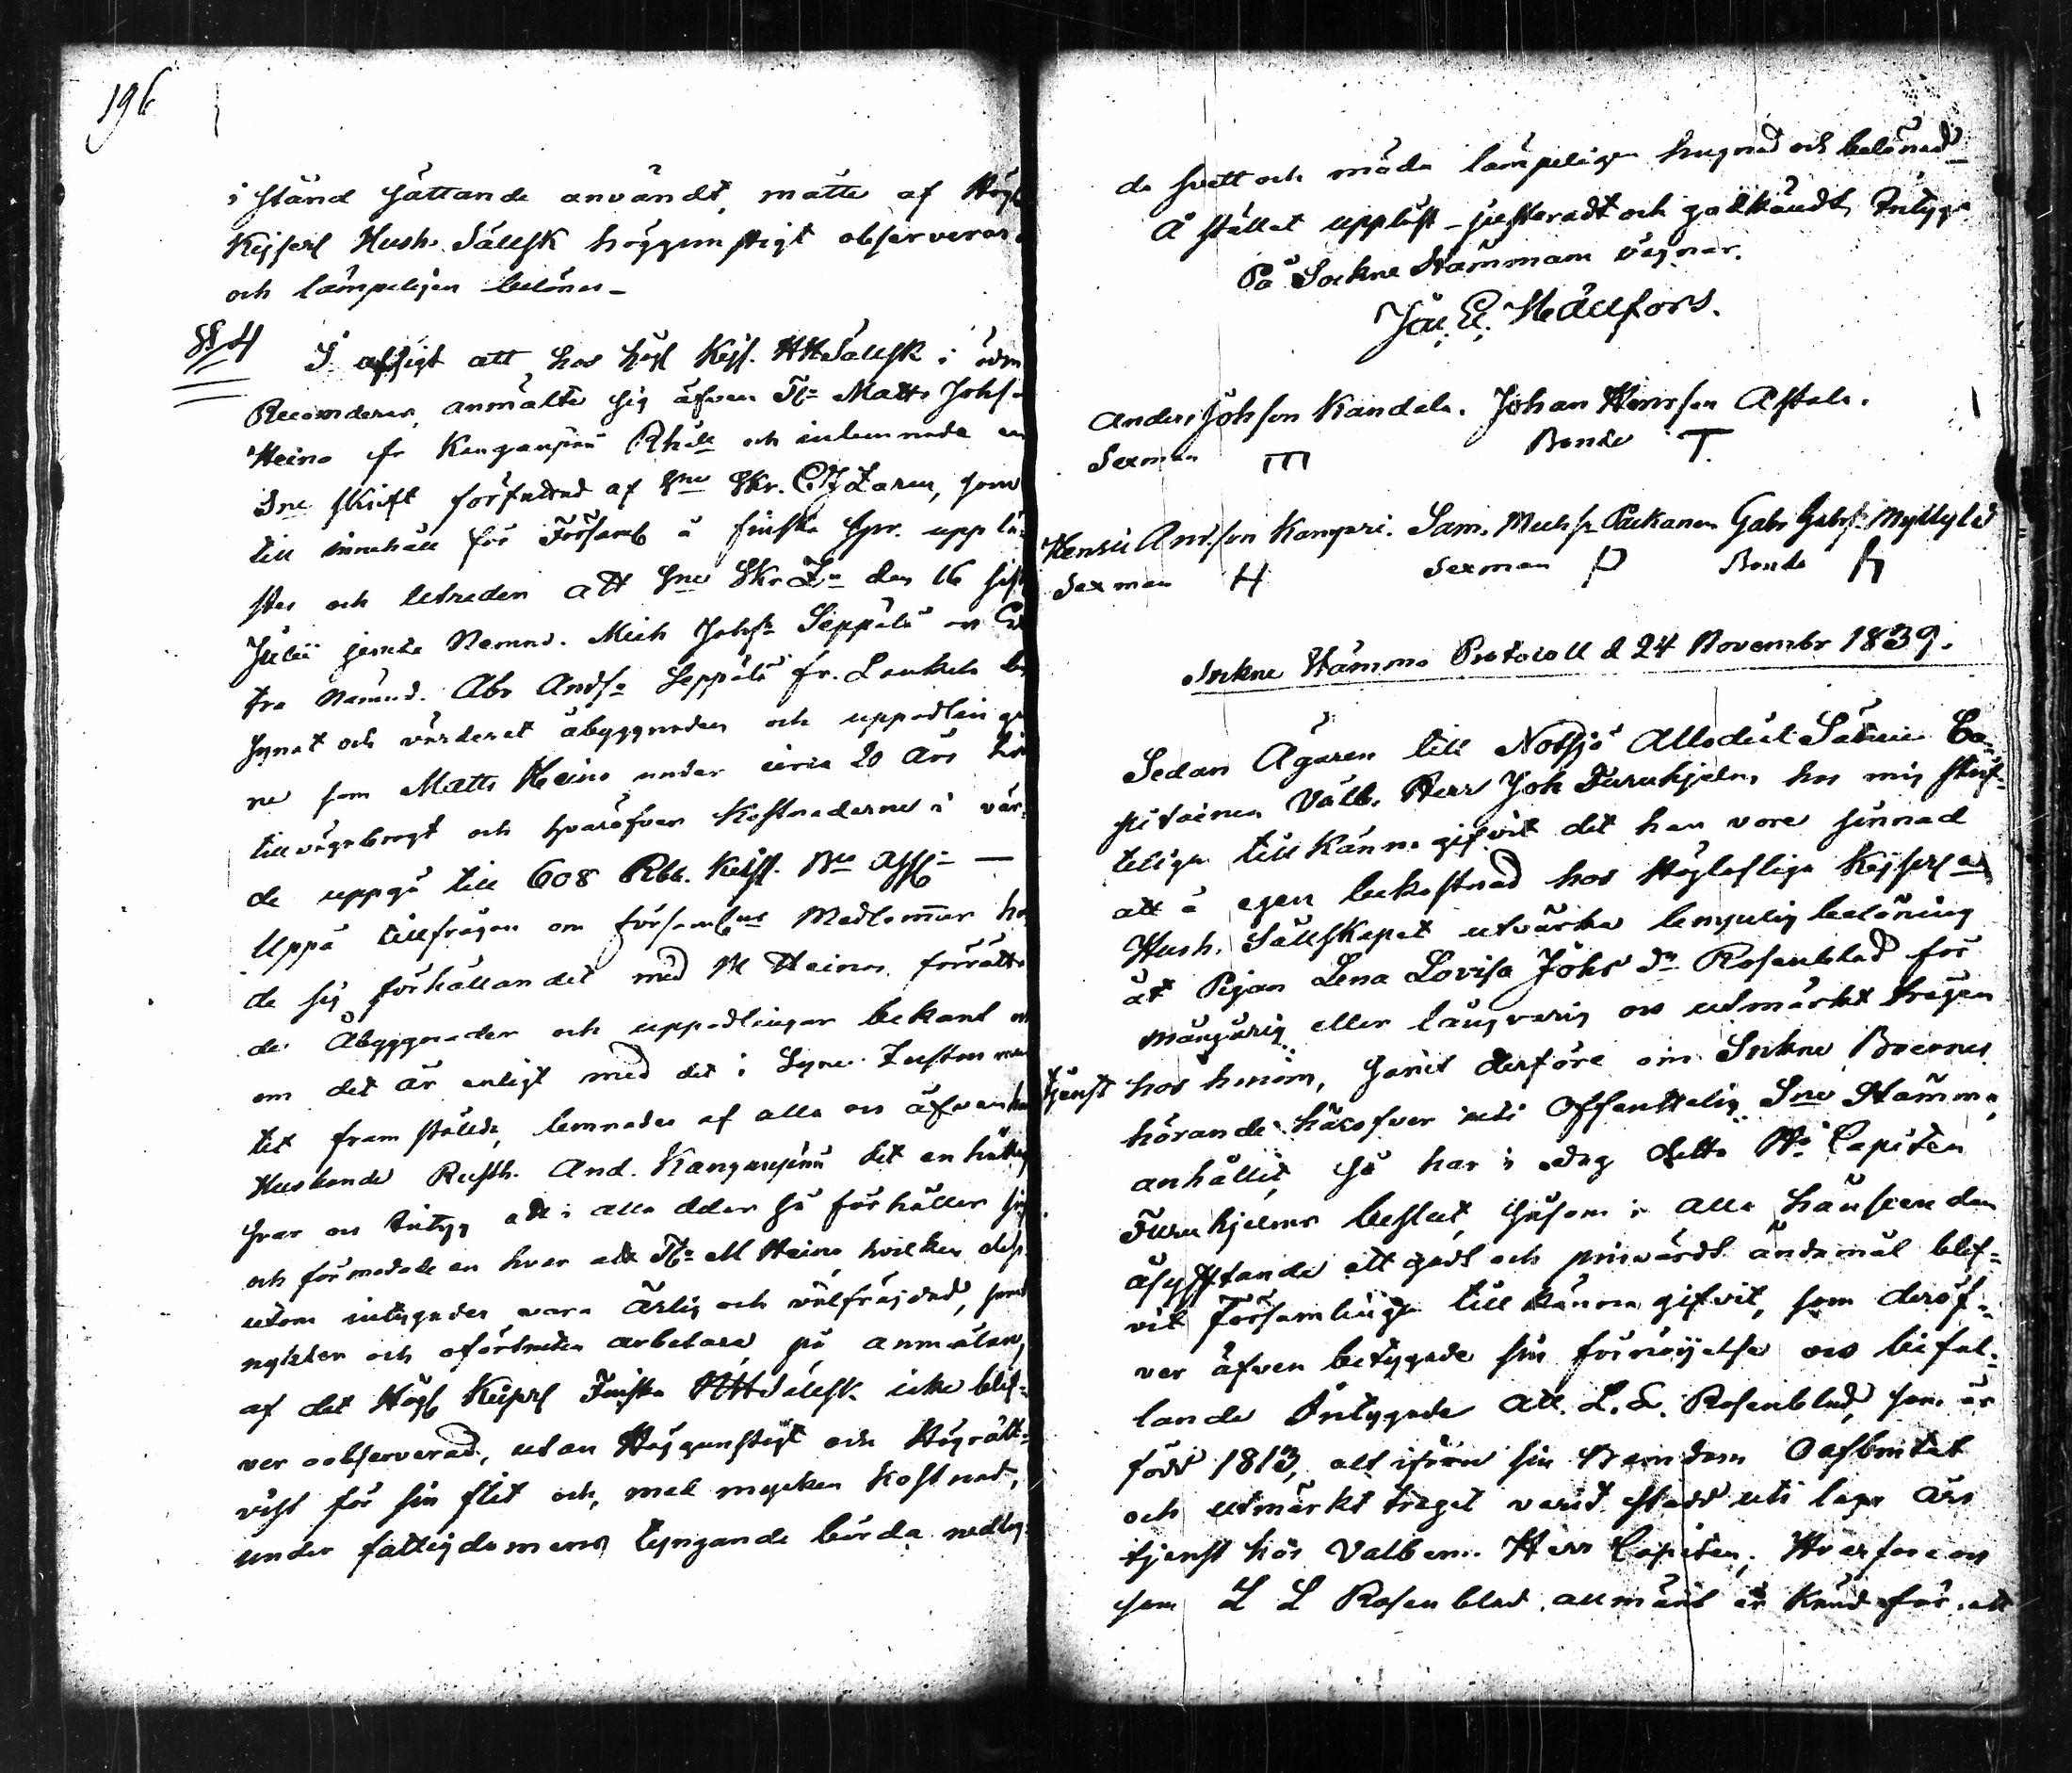 196
i stånd sättande användt, måtte af Högl
Kejserl Hush. Sällsk höggunstigt observeras
och lämpeligen belönas_
§ 4 I afsigt att hos högl Kejs. HHSällsk i ödm
Recomderas, anmälte sig äfven Matts Johs
Heino fr Kanganpää Rhåll och inlemnade en
Sne skrift författad af Skr. Zaren, som
till innehåll för Församl å finska spr. upplä-
stes och letreden att Skr Zn den 16 sist
Julii jemte Nemnd. Mich Johs Seppälä
fra Nämnd. Abr Ands Seppälä fr. Laukela be
synat och värderat åbyggnaden och uppodlinga
ne som Matts Heino under circa 20 års
tillvägabragt och hvaröfver kostnaderne i vär-
de uppgå till 608 Rbl.
Uppå tillfrågan om församl Medlemmar
de sig förhållandet med M Heinos förrätta
de Åbyggnader och uppodlingar bekant
om det är enligt med det i Syne
tet framställde, lemnades af alla
Ands. Kanganpää det enhälliga
svar och Intyg att i alla delar så förhåller sig
och förmodade en hvar att M Heino, hvilken dess
utom intygades vara ärlig och välfräjdad, samt
nykter och oförtruten arbetare, på anmälan
af det Högl Kejserl Finska HHSällsk icke blif-
ver oobserverad, utan Höggunstigt och Högrätt-
vist för sin flit och, med mycken kostnad,
under fattigdomens tyngande börda nedlag-
de svett och möda lämpeligen hugnad och belönad_
Å stället uppläst - justeradt och godkändt, Intyga
På Sockne Stämmans vägnar.
Hällfors.
Anders Johsson Kandela. Johan Henrsson Astala.
Sexman m Bonde T
Henric Andsson Kamppi. Sam. Michs Paikanen Gabr Gabrs. Myllylä
Sexman H Sexman P Bonde
Sockne Stämmo Protocoll d 24 Novembr 1839.
Sedan Ägaren till Notsjö Allodial Säteri Ca-
pitainen Välb. Herr Joh Furuhjelm hos mig skrif-
teligen tillkänna gifvit det han vore sinnad
att å egen bekostnad hos Höglofliga Kejserl
Hush. Sällskapet utvärka lempelig belöning
åt Pigan Lena Lovisa Johs dr Rosenblad för
mångårig eller långvarig och utmärkt trägen
tjenst hos honom, samt derföre om Sokne Boernes
hörande häröfver uti Offenttelig Sne Stämma,
anhållit, så har i dag detta Hr Capiten
Furuhjelms beslut, såsom i alla hänseenden
åsyftande ett godt och prisvärdt ändamål blif-
vit Församlingen tillkänna gifvit, som deröf-
ver äfven betygade sin förnöjelse och bifal-
lande Intygade att L. L. Rosenblad, som är
född 1813, alt ifrån sin Barndom Oafbrutet
och utmärkt träget varit stadd uti lega års
tjenst hos Välbem. Herr Capiten, Hvarföre och
som L L Rosenblad allmänt är känd för ett